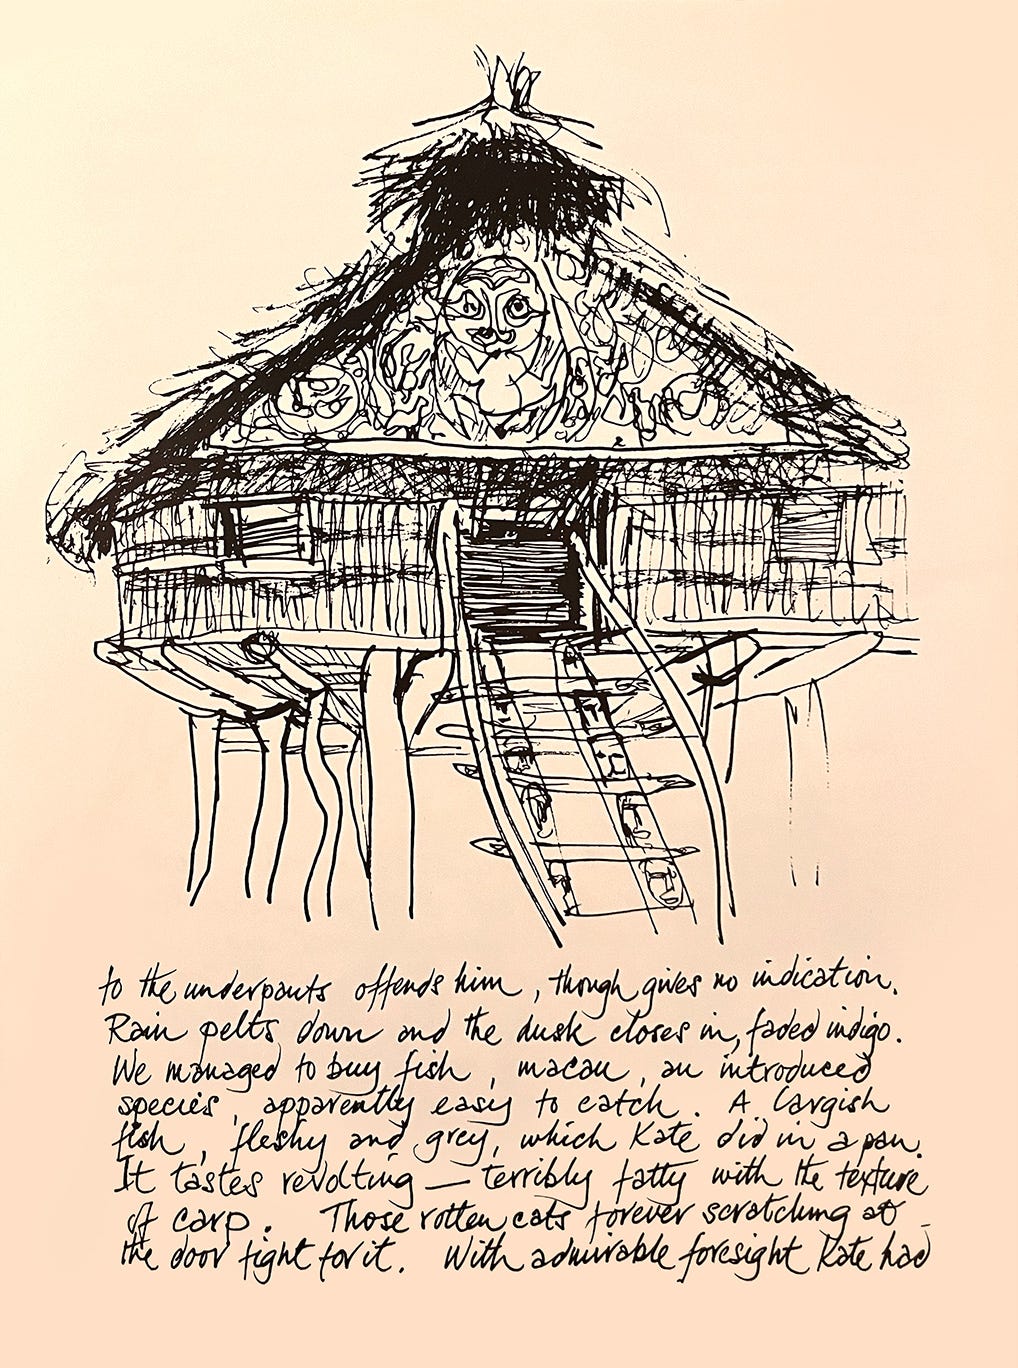 to the underpants offends him, though gives no indication.
Rain pelts down and the dusk closes in, faded indigo.
We managed to buy fish, macau, an introduced
species, apparently easy to catch. A largish
fish, fleshy and grey, which Kate did in a pan.
It tastes revolting — terribly fatty with the texture
of carp. Those rotten cats forever scratching at
the door fight for it. With admirable foresight Kate had